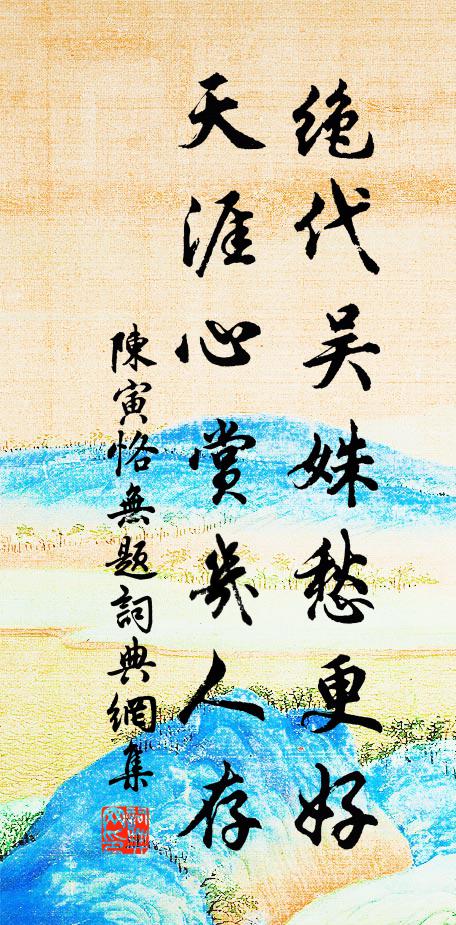 絶代吴姝愁更好
天涯心赏幾人存
陳寅恪無题詞典網集